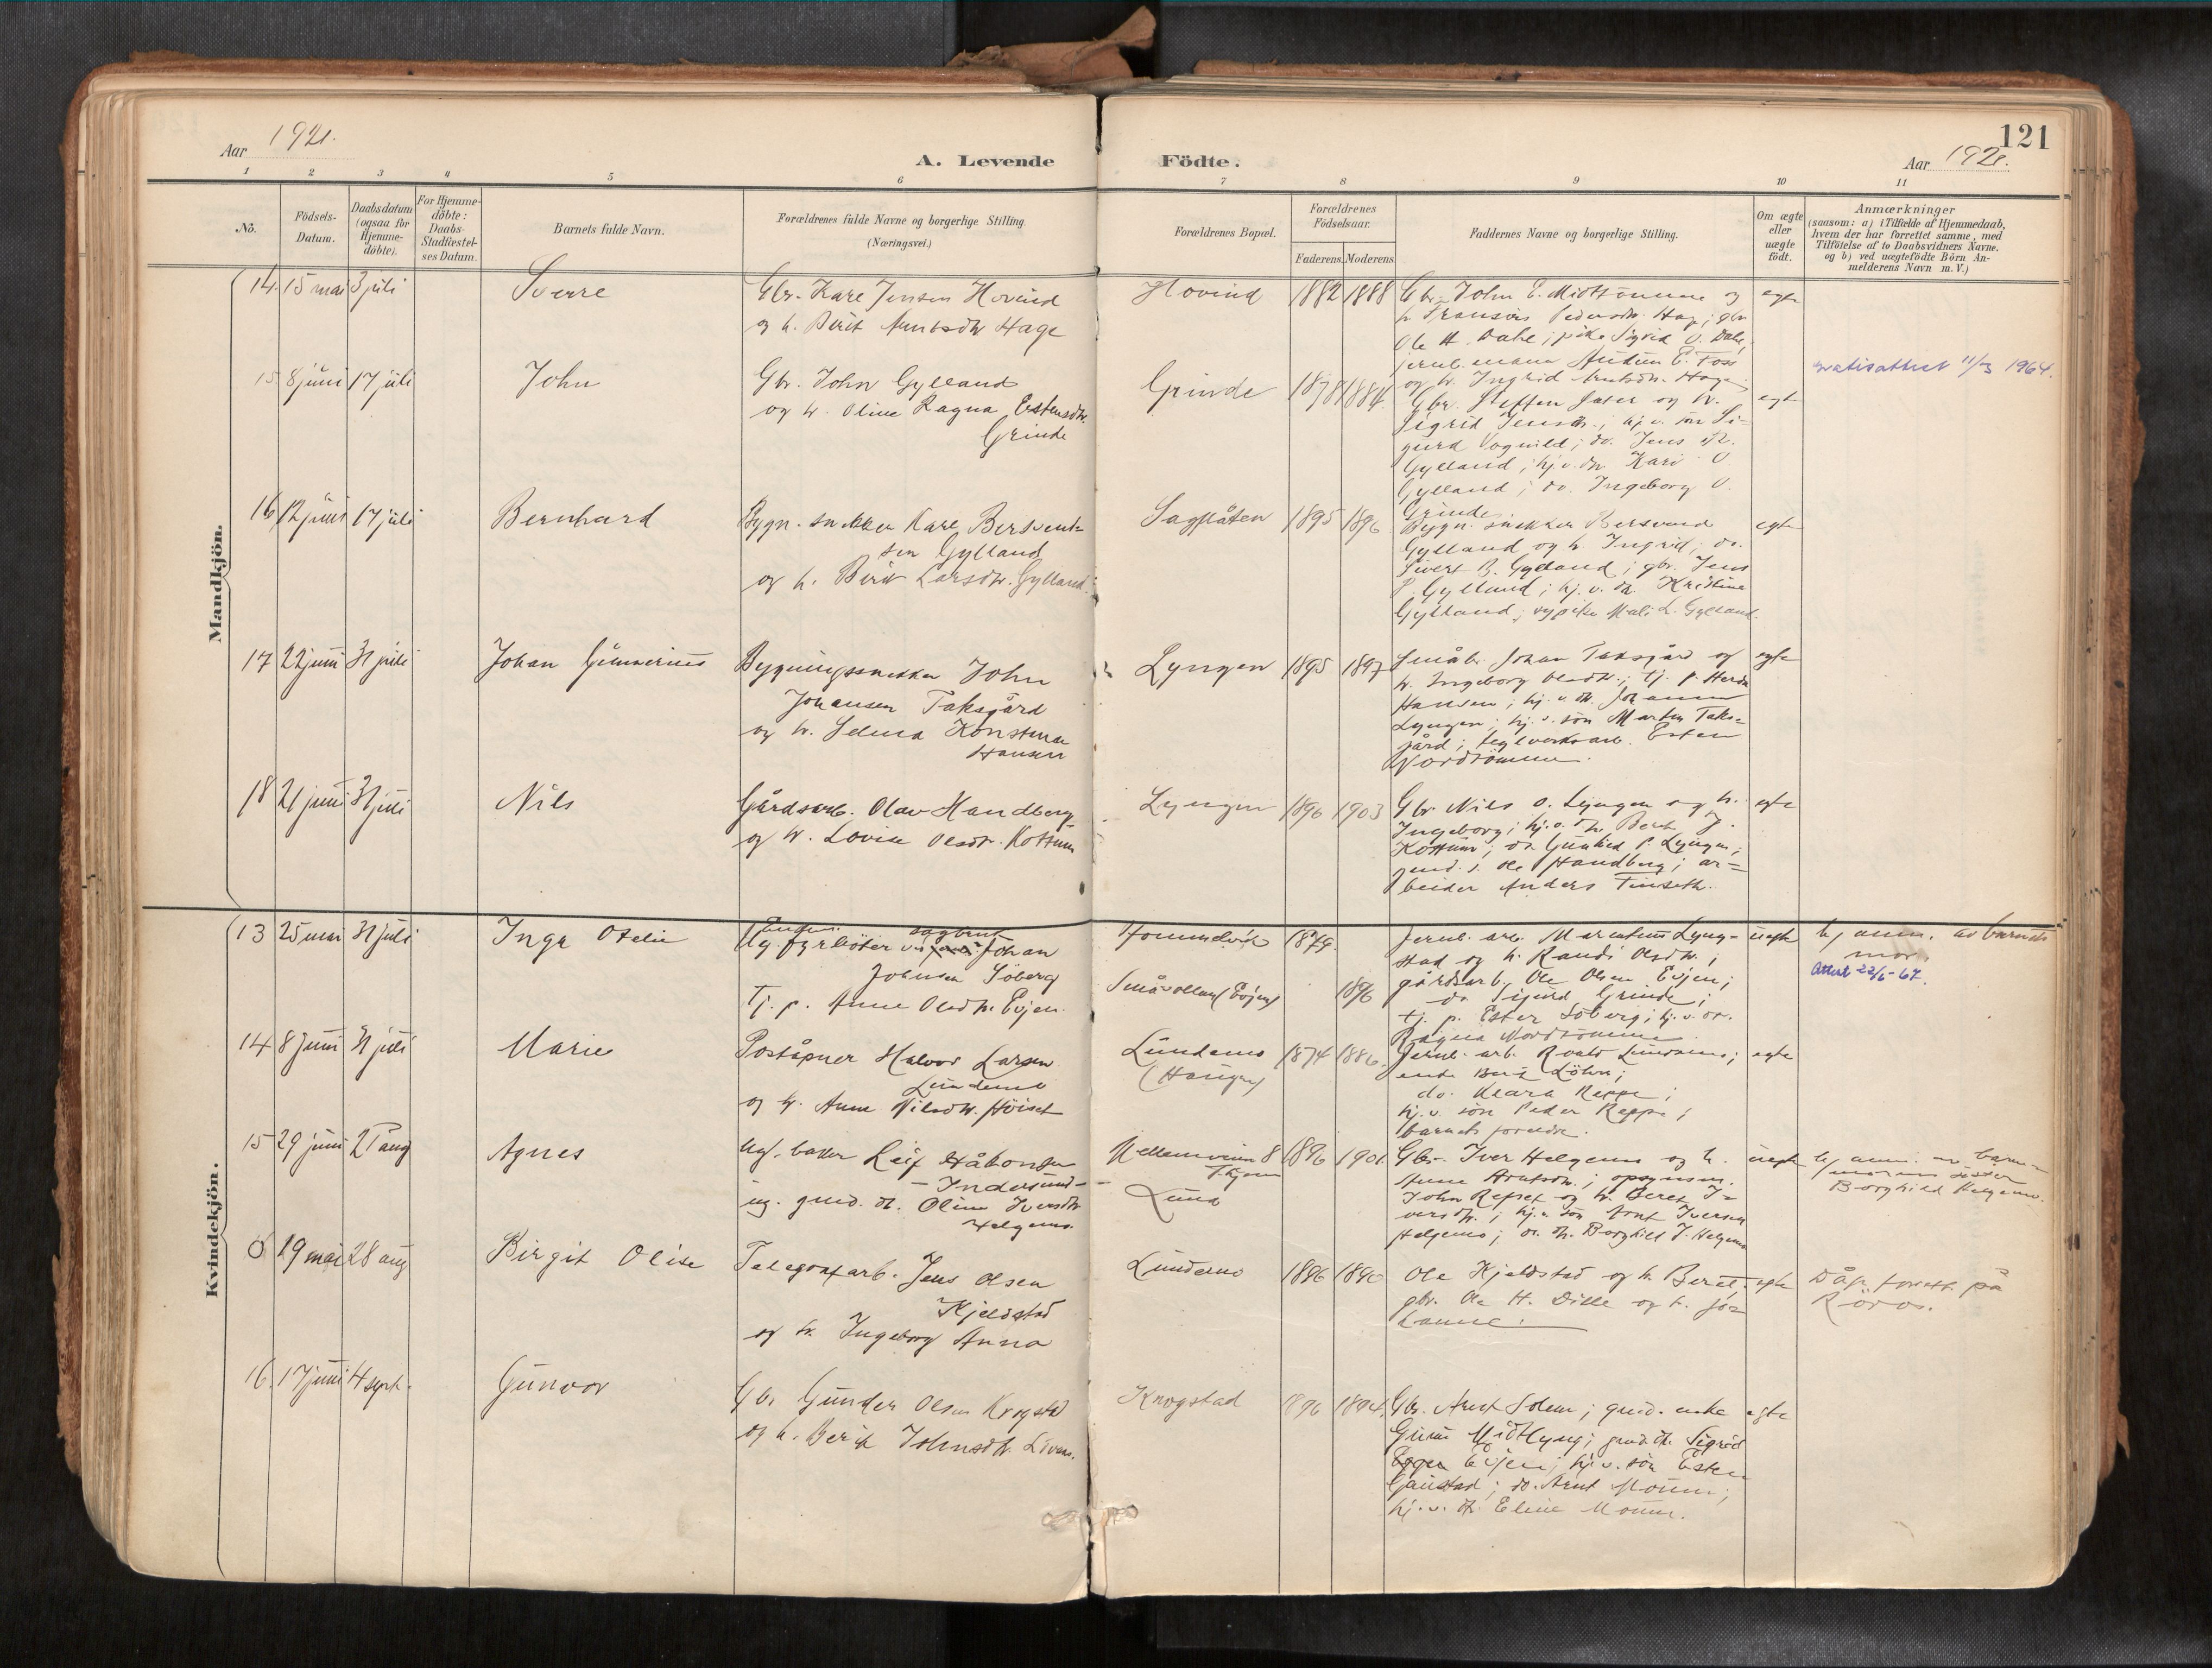 121
Aar 1921.
A. Levende Födte.
Aar 1921.
1 2 3 4 5 6 7 8 9 10 11
No.
Födsels-
Datum.
Daabsdatum
(ogsaa for
Hjemme-
döbte).
For Hjemme-
döbte:
Daabs-
Stadfæstel-
ses Datum.
Barnets fulde Navn.
Forældrenes fulde Navne og borgerlige Stilling.
(Næringsvei.)
Forældrenes Bopæl.
Forældrenes
Födselsaar.
Faderens. Moderens.
Faddernes Navne og borgerlige Stilling.
Om ægte
eller
uægte
födt.
Anmærkninger
(saasom: a) i Tilfælde af Hjemmedaab,
hvem der har forrettet samme, med
Tilföielse af to Daabsvidners Navne.
og b) ved uægtefödte Börn An-
melderens Navn m. V.)
Mandkjön.
14. 15 mai 3 juli Sverre
Gbr. Kare Jensen Hovind
og h. Berit Arntsdtr Hage
Hovind 1882 1888
Gbr. John E. Midttömme og
h. Pedersdtr. Hage; gbr
Ole H. Dahl; pike Sigrid O. Dahl;
jernb.mann Audun E. Foss
og h. Ingrid Arntsdtr. Hage
egte
15 8 juni 17 juli John
Gbr. John Gylland
og h. Oline Ragna Estensdtr.
Grinde
Grinde 1878 1884.
Gbr. Steffen og h.
Sigrid Jensdtr.; hj.v. sön Si-
gurd Vognild; do. Jens
Gylland; hj.v.dtr. Kari O.
Gylland; do. Ingeborg O.
Grinde
egte
gratisattest 11/3 1964.
16 12 juni 17 juli Bernhard
Bygn. snekker Kare Bersvend-
sen Gylland
og h. Berit Larsdtr. Gylland.
Sagflåten 1895 1896
Bygn. snekker Bersvend
Gylland og h. Ingrid; do.
Sivert B. Gylland; gbr. Jens
P. Gylland; hj. v. dtr. Kristine
Gylland; sypike Mali L. Gylland.
egte
17 22 juni 31 juli Johan Gunnerius
Bygningssnekker John
Johansen Taksgård
og h. Selma Konstanse
Hansen
Lyngen 1895 1897
Småbr. Johan Taksgård og
h. Ingeborg Olsdtr.; tj. p. Herda
Hansen; hj. v. dtr. Johanna
Lyngen; hj. v. sön Martin Taks-
gård; teglverksarb. Esten
Nordtömme.
egte
18 21 juni 31 juli Nils
Gårdsarb. Olav Handberg
og h. Lovise Olsdtr. Kottum
Lyngen 1896 1903
Gbr. Nils O. Lyngen og h.
Ingeborg; hj.v. dtr. Berit J.
Kottum; do. Gunhild P. Lyngen;
gmd. s. Ole Handberg; ar-
beider Anders Tinseth.
egte
Kvindekjön.
13 25 mai 31 juli Inga Otelie
Ug. fyrböter Johan
Johnsen Söberg
Tj. p. Anne Olsdtr. Evjen.
Hommelvik 1879.
Småvollan (Evjen) 1896
Jernb. arb. Marentius Lyng-
stad og h. Randi Olsdtr.;
gårdsarb. Ole Olsen Evjen;
do Sigurd Grinde;
tj. p. Ester Söberg; hj. v. dtr.
Ragna Nordtömme.
uegte
hj anm. av barnets
mor.
Attest 22/6-67.
14 8 juni 31 juli Marie
Poståpner Halvor Larsen
Lundemo
og h. Anne Nilsdtr. Höiset
Lundemo
(Haugen)
1874 1886.
Jernb. arb. Roald Lundemo;
enke Berit Löhre;
do. Klara Reppe;
hj.v. sön Peder Reppe;
barnets foreldre.
egte
15 29 juni 21 aug Agnes
Ug. baker Leif Håkonsen
- Indersund -
ug. gmd. dt. Oline Iversdtr
Helgemo.
Mellemveien 8
Thjem
Lund
1896 1901.
Gbr. Iver Helgemo og h.
Anne Arntsdtr.; opsynsm.
John Refset og h. Beret I-
versdtr.; hj.v. sön Arnt Iversen
Helgemo; do. dtr. Borghild I. Helgemo
uegte
hj anm. av barne-
morens söster
Borghild Helgemo.
0 29 mai 28 aug Birgit Olise
Telegrafarb. Jens Olsen
Kjeldstad
og h. Ingeborg Anna
Lundemo 1886 1890
Ole Kjeldstad og h. Beret;
gbr. Ole H. Dille og h. Jo-
hanne.
egte
Dåp forrett. på
Röros.
16. 17 juni 4 sept. Gunvor
Gbr. Gunder Olsen Krogstad
og h. Berit Johnsdtr. Lövens.
Krogstad 1896 1894.
Gbr. Arnt Solem; gmd. enke
Guru Midtlyng; gmd. dtr. Sigrid
Evjen; hj. v. sön Esten
Gaustad; do. Arnt Moum;
hj. v. dt. Eline Moum.
egte